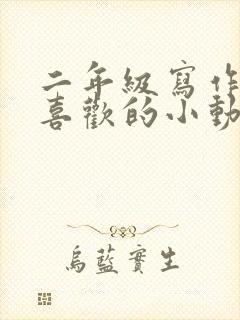 二年級寫作
喜歡的小動
烏藍實生